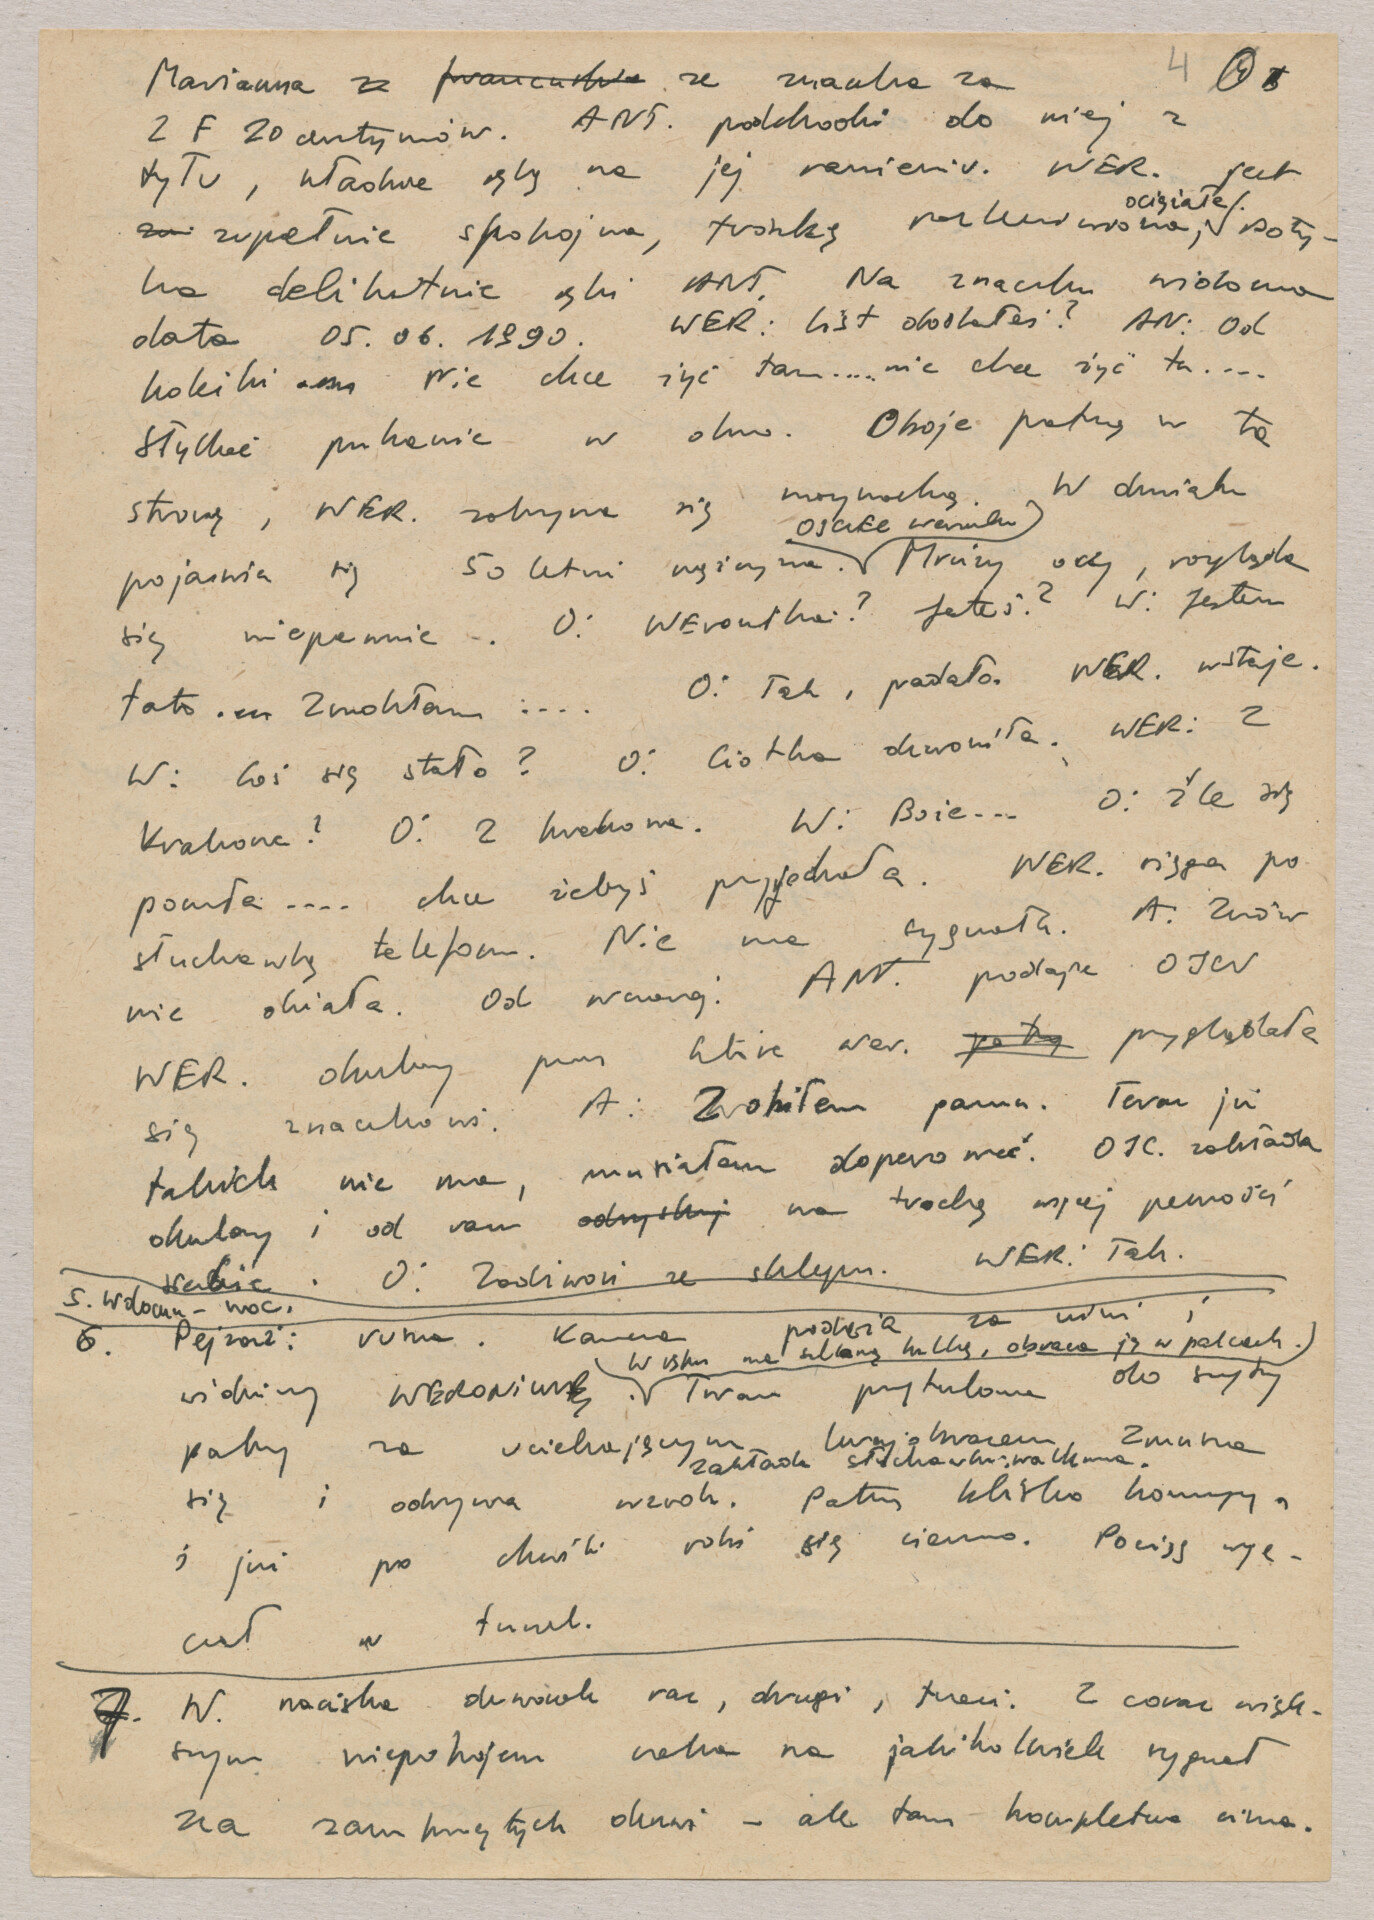 4
Marianna ze francuskie ze znaczka za
2 F 20 centymów. ANT. podchodzi do niej z
tyłu, kładzie rękę na jej ramieniu. WER. jest
zupełnie spokojna, troszkę ociężała. Doty-
ka delikatnie ręki ANT. Na znaczku widoczna
data 05.06.1990. WER: List dostałeś? AN: Od
kobitki Nie chce żyć tam.... nie chce żyć tu....
Słychać pukanie w okno. Oboje patrzą w tę
stronę, WER. zakrywa się marynarką. W
OJCIEC
pojawia się 50 letni mężczyzna. Mruży oczy, rozgląda
się niepewnie. O: WEronika? Jesteś? W: Jestem
tato Zmokłam .... O: Tak, padało. WER. wstaje.
W: Coś się stało? O: Ciotka dzwoniła. WER: Z
Krakowa? O: Z Krakowa. W: Boże... O: Źle się
poczuła.... chce żebyś przyjechała. WER. sięga po
słuchawkę telefonu. Nie ma sygnału. A: Znów
nie działa. Od wczoraj. ANT. podaje OJCU
WER. okulary przez które wer. patrzy przyglądała
się znaczkowi. A: Zrobiłem panu. Teraz już
takich nie ma, musiałem dopasować. OJC. zakłada
okulary i od razu odzyskuj ma trochę więcej pewności
siebie. O: Zadzwoń ze sklepu. WER: Tak.
noc.
6. Pejzaż: rusza. Kamera podąża za nim i
W ręku ma szklaną kulkę, obraca ją w palcach.
widzimy WERONIKĘ. Twarz przytulona do szyby
patrzy za uciekającym krajobrazem. Zmusza
zakłada słuchawki walkmana.
się i odrywa wzrok. Patrzy blisko
i już po chwili robi się ciemno. Pociąg wje-
chał w tunel.
7. W. naciska dzwonek raz, drugi, trzeci. Z coraz więk-
szym niepokojem czeka na jakikolwiek sygnał
za zamkniętych drzwi - ale tam kompletna cisza.